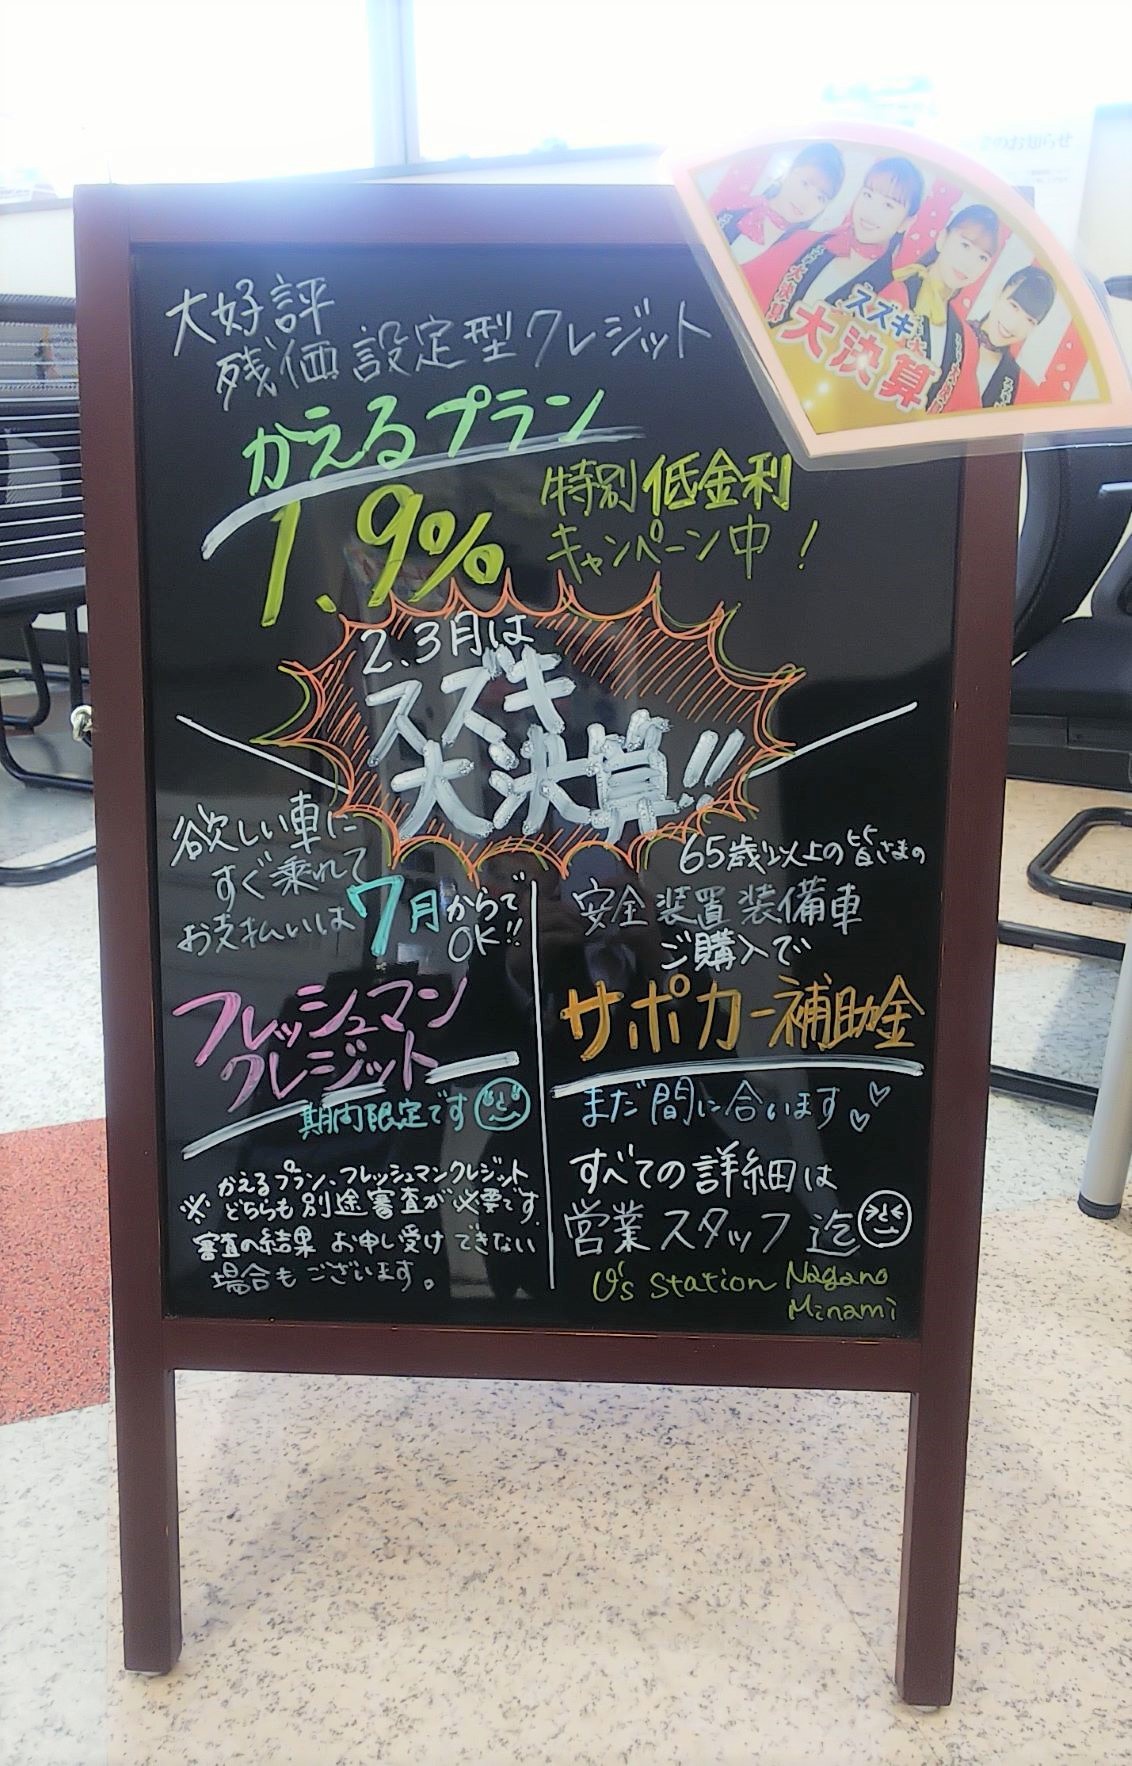 大好評
残価設定型クレジット
かえるプラン
1.9%
特別低金利
キャンペーン中!
スズキの
大決算
2.3月は
スズキ
大決算!!
欲しい車に
すぐ乗れて
お支払いは7月からで
OK!!
フレッシュマン
クレジット
期間限定です
※かえるプラン、フレッシュマンクレジット
どちらも別途審査が必要です.
審査の結果 お申し受けできない
場合もございます。
65歳以上の皆さまの
安全装置装備車
ご購入で
サポカー補助金
まだ間に合います
すべての詳細は
営業スタッフ迄
U's Station Nagano
Minami